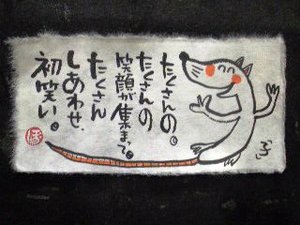 たくさんの。
たくさんの
笑顔が集まって。
たくさん
しあわせ。
初笑い。